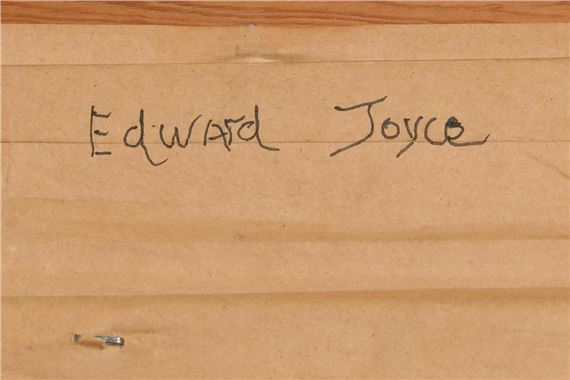 Edward Joyce